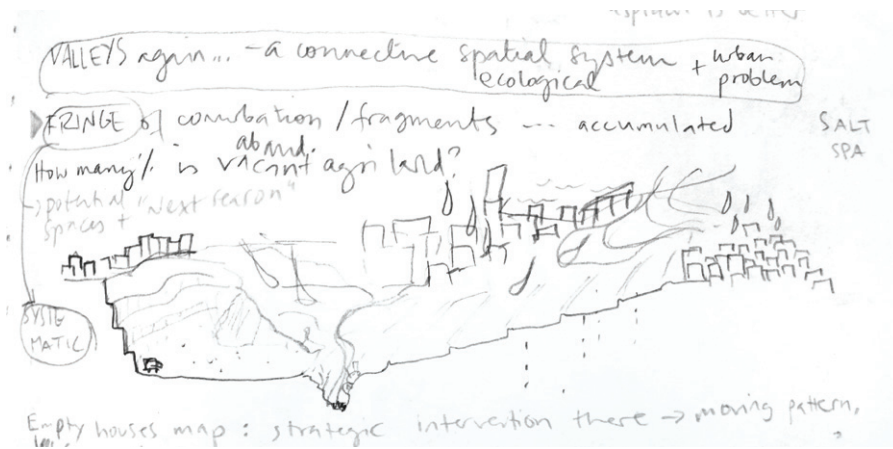 VALLEYS again... - a connective spatial system + urban
ecological problem
FRINGE of conurbation / fragments --- accumulated
SALT
SPA
aband.
How many % is vacant agri land?
→ potential "Next season"
spaces +
SYSTE
MATIC
Empty houses map : strategic intervention there → moving pattern,